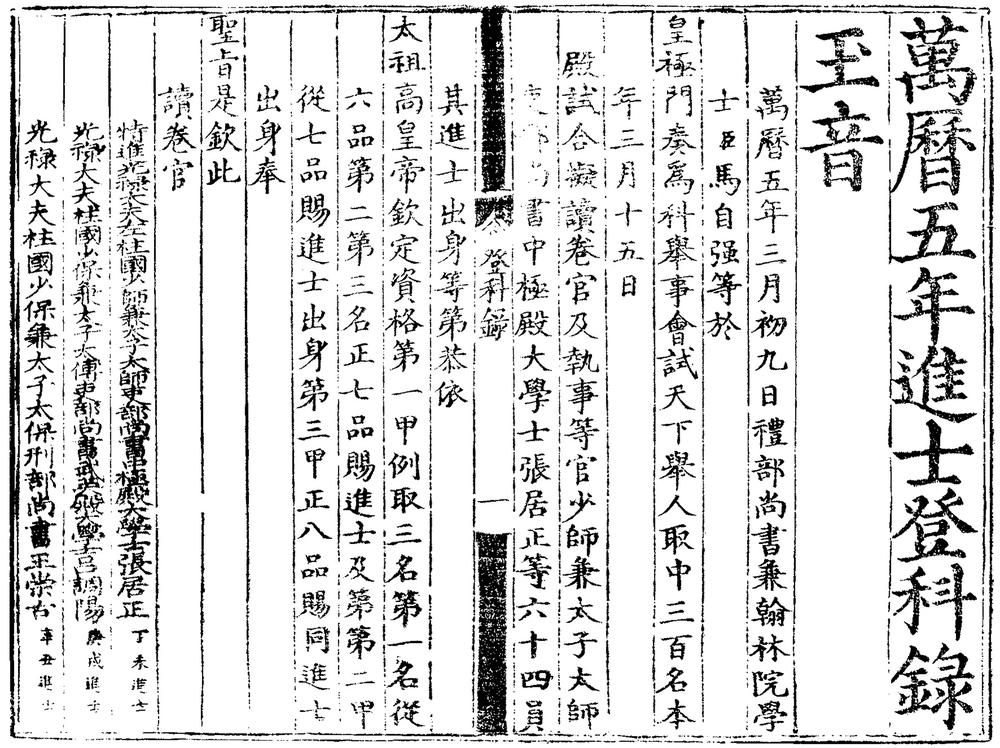 萬曆五年進士登科錄
玉音
萬曆五年三月初九日禮部尚書兼翰林院學
士臣馬自强等於
皇極門奏爲科舉事會試天下舉人取中三百名本
年三月十五日
殿試合擬讀卷官及執事等官少師兼太子太師
吏部尚書中極殿大學士張居正等六十四員
登科錄
一
其進士出身等第恭依
太祖高皇帝欽定資格第一甲例取三名第一名從
六品第二第三名正七品賜進士及第第二甲
從七品賜進士出身第三甲正八品賜同進士
出身奉
聖旨是欽此
讀卷官
特進光祿大夫左柱國少師兼太子太師吏部尚書中極殿大學士張居正 丁未進士
光祿大夫柱國少保兼太子太傅吏部尚書武英殿大學士呂調陽 庚戌進士
光祿大夫柱國少保兼太子太保刑部尚書王崇古 辛丑進士